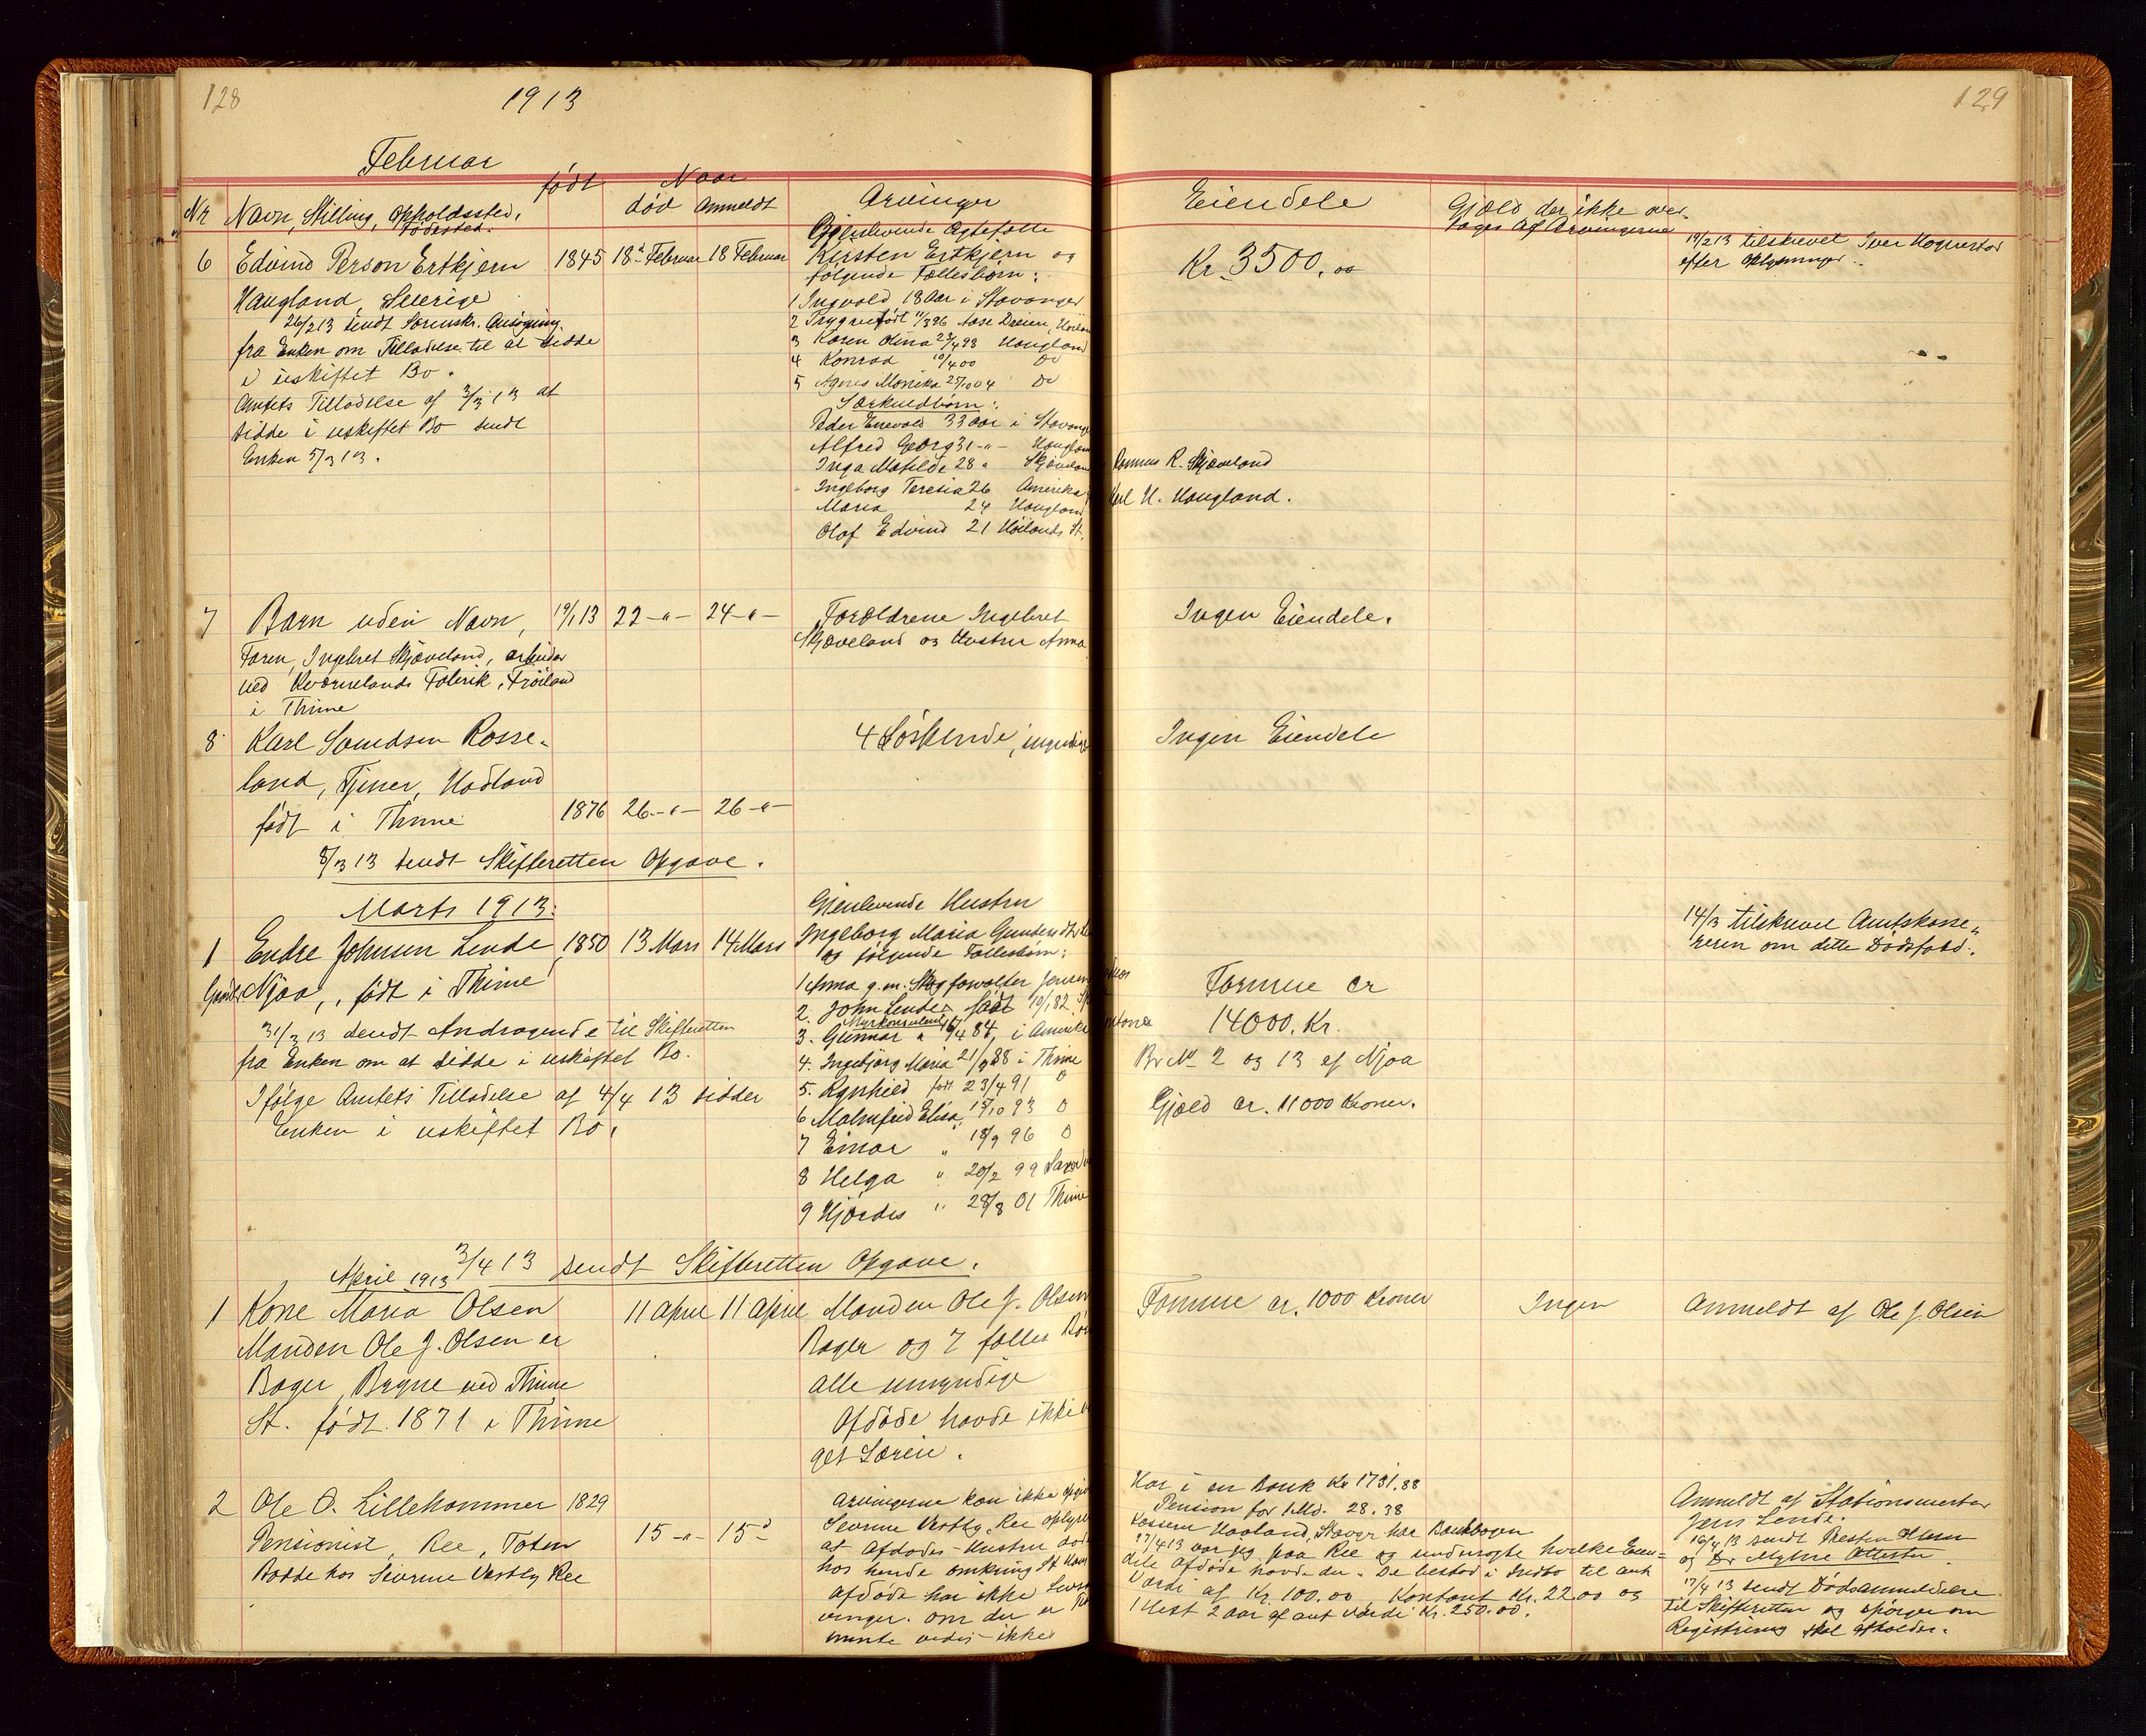 128
1913
Februar
Nr Navn, Stilling, Opholdssted,
Fødested.
født
Naar
død Anmeldt
Arvinger
6 Edvind Person Ertkjern 1845 18de Februar 18 Februar
Haugland, Sverige
26/2 13 sendt Sorenskr. Ansøgning
fra Enken om Tilladelse til at sidde
i uskiftet Bo.
Amtets Tilladelse af 3/3 13 at
sidde i uskiftet Bo sendt
Enken 5/3 13.
Gjenlevende Ægtefælle
Kirsten Ertkjern og
følgende Fællesbørn:
1 Ingvald 18 Aar i Stavanger
2 Trygve født 11/3 96 Aase Dreien,
3 Karen Olina 23/4 98 Haugland
4 Konrad 10/4 00 Do
5 Agnes Monika 25/10 04 Do
Særkuldbørn:
Peder Enevold 33 aar i
Alfred Georg 31 -"-
Inga Matilde 28 "
Ingeborg Teresia 26 Amerika
Maria 24 Haugland
Olaf Edvind 21 Høilands St.
7 Barn uden Navn, 19/1 13 22 -"- 24 -"-
Faren, Ingebret Skjæveland, arbeider
ved Kværnelands Fabrik, Frøiland
i Thime
Forældrene Ingebret
Skjæveland og Hustru Anna
8 Karl Somdsen Rosse-
land, Tjener, Hadland
født i Thime 1876 26 -"- 26 -"-
4 Søskende,
8/3 13 sendt Skifteretten Opgave.
Marts 1913:
1 Endre Johnsen Lende, 1850 13 Mars 14 Mars
Njaa,, født i Thime
31/3 13 sendt Andragende til Skifteretten
fra Enken om at sidde i uskiftet Bo.
Ifølge Amtets Tilladelse af 4/4 13 sidder
Enken i uskiftet Bo.
Gjenlevende Hustru
Ingeborg Maria
og følgende Fællesbørn:
1 Anna g.m. Skogforvalter Jensen
2. John Lende født 10/1 82
Myrkonsulent
3. Gunnar " 16/4 84, i
4. Ingebjørg Maria 21/9 88 i Thime
5. Ragnhild født 23/4 91 O
6 Malmfrid Elisa, 15/10 93 O
7 Einar " 18/9 96 O
8 Helga " 20/2 99
9 Hjørdis " 28/8 01 Thime
3/4 13 sendt Skifteretten Opgave.
April 1913
1 Kone Maria Olsen 11 April 11 April
Manden Ole J. Olsen er
Bager, Bryne ved Thime
St. født 1871 i Thime
Manden Ole J. Olsen
Bager og 7 fælles
alle umyndige
Afdøde havde ikke
get Særeie.
2 Ole O. Lillehammer 1829
Pensionist, Ree, Toten 15 -"- 15 -"-
Bodde hos Severine Vestly Ree
Arvingerne kan ikke
Vestly, Ree
at Afdødes Hustru
hos hende omkring St.
afdøde har ikke
vinger. om der er
mente vides ikke
129
Eiendele
Gjæld der ikke over-
tages Af Arvingerne
19/2 13 tilskrevet Iver Hognestad
efter oplysninger.
Kr. 3500,00
Rasmus R. Skjæveland
Karl H. Haugland.
Ingen Eiendele.
Ingen Eiendele
14/3 tilskrevet Amtskasse-
reren om dette Dødsfald.
Formue cr
14000. Kr.
Br No 2 og 13 af Njaa
Gjæld cr. 11000 Kroner.
Formue cr. 1000 Kroner
Ingen
Anmeldt af Ole J. Olsen
Har i en Bank Kr 1731,88
Pension for 1 Md. 28.38
Kasserer Haaland, Stavgr har Bankbogen
17/4 13 var jeg paa Ree og undersøgte hvilke Eien-
dele afdøde havde der. De bestod i Indbo til ant
Værdi af Kr. 100.00 Kontant Kr. 22.00 og
1 Hest 2 aar af ant værdi Kr. 250.00.
Anmeldt af Stationsmester
Jens Lende.
16/4 13 sendt Presten
og Dr Myhre Attester.
17/4 13 sendt Dødsanmeldelse
til Skifteretten og spørger om
Registrering skal afholdes.